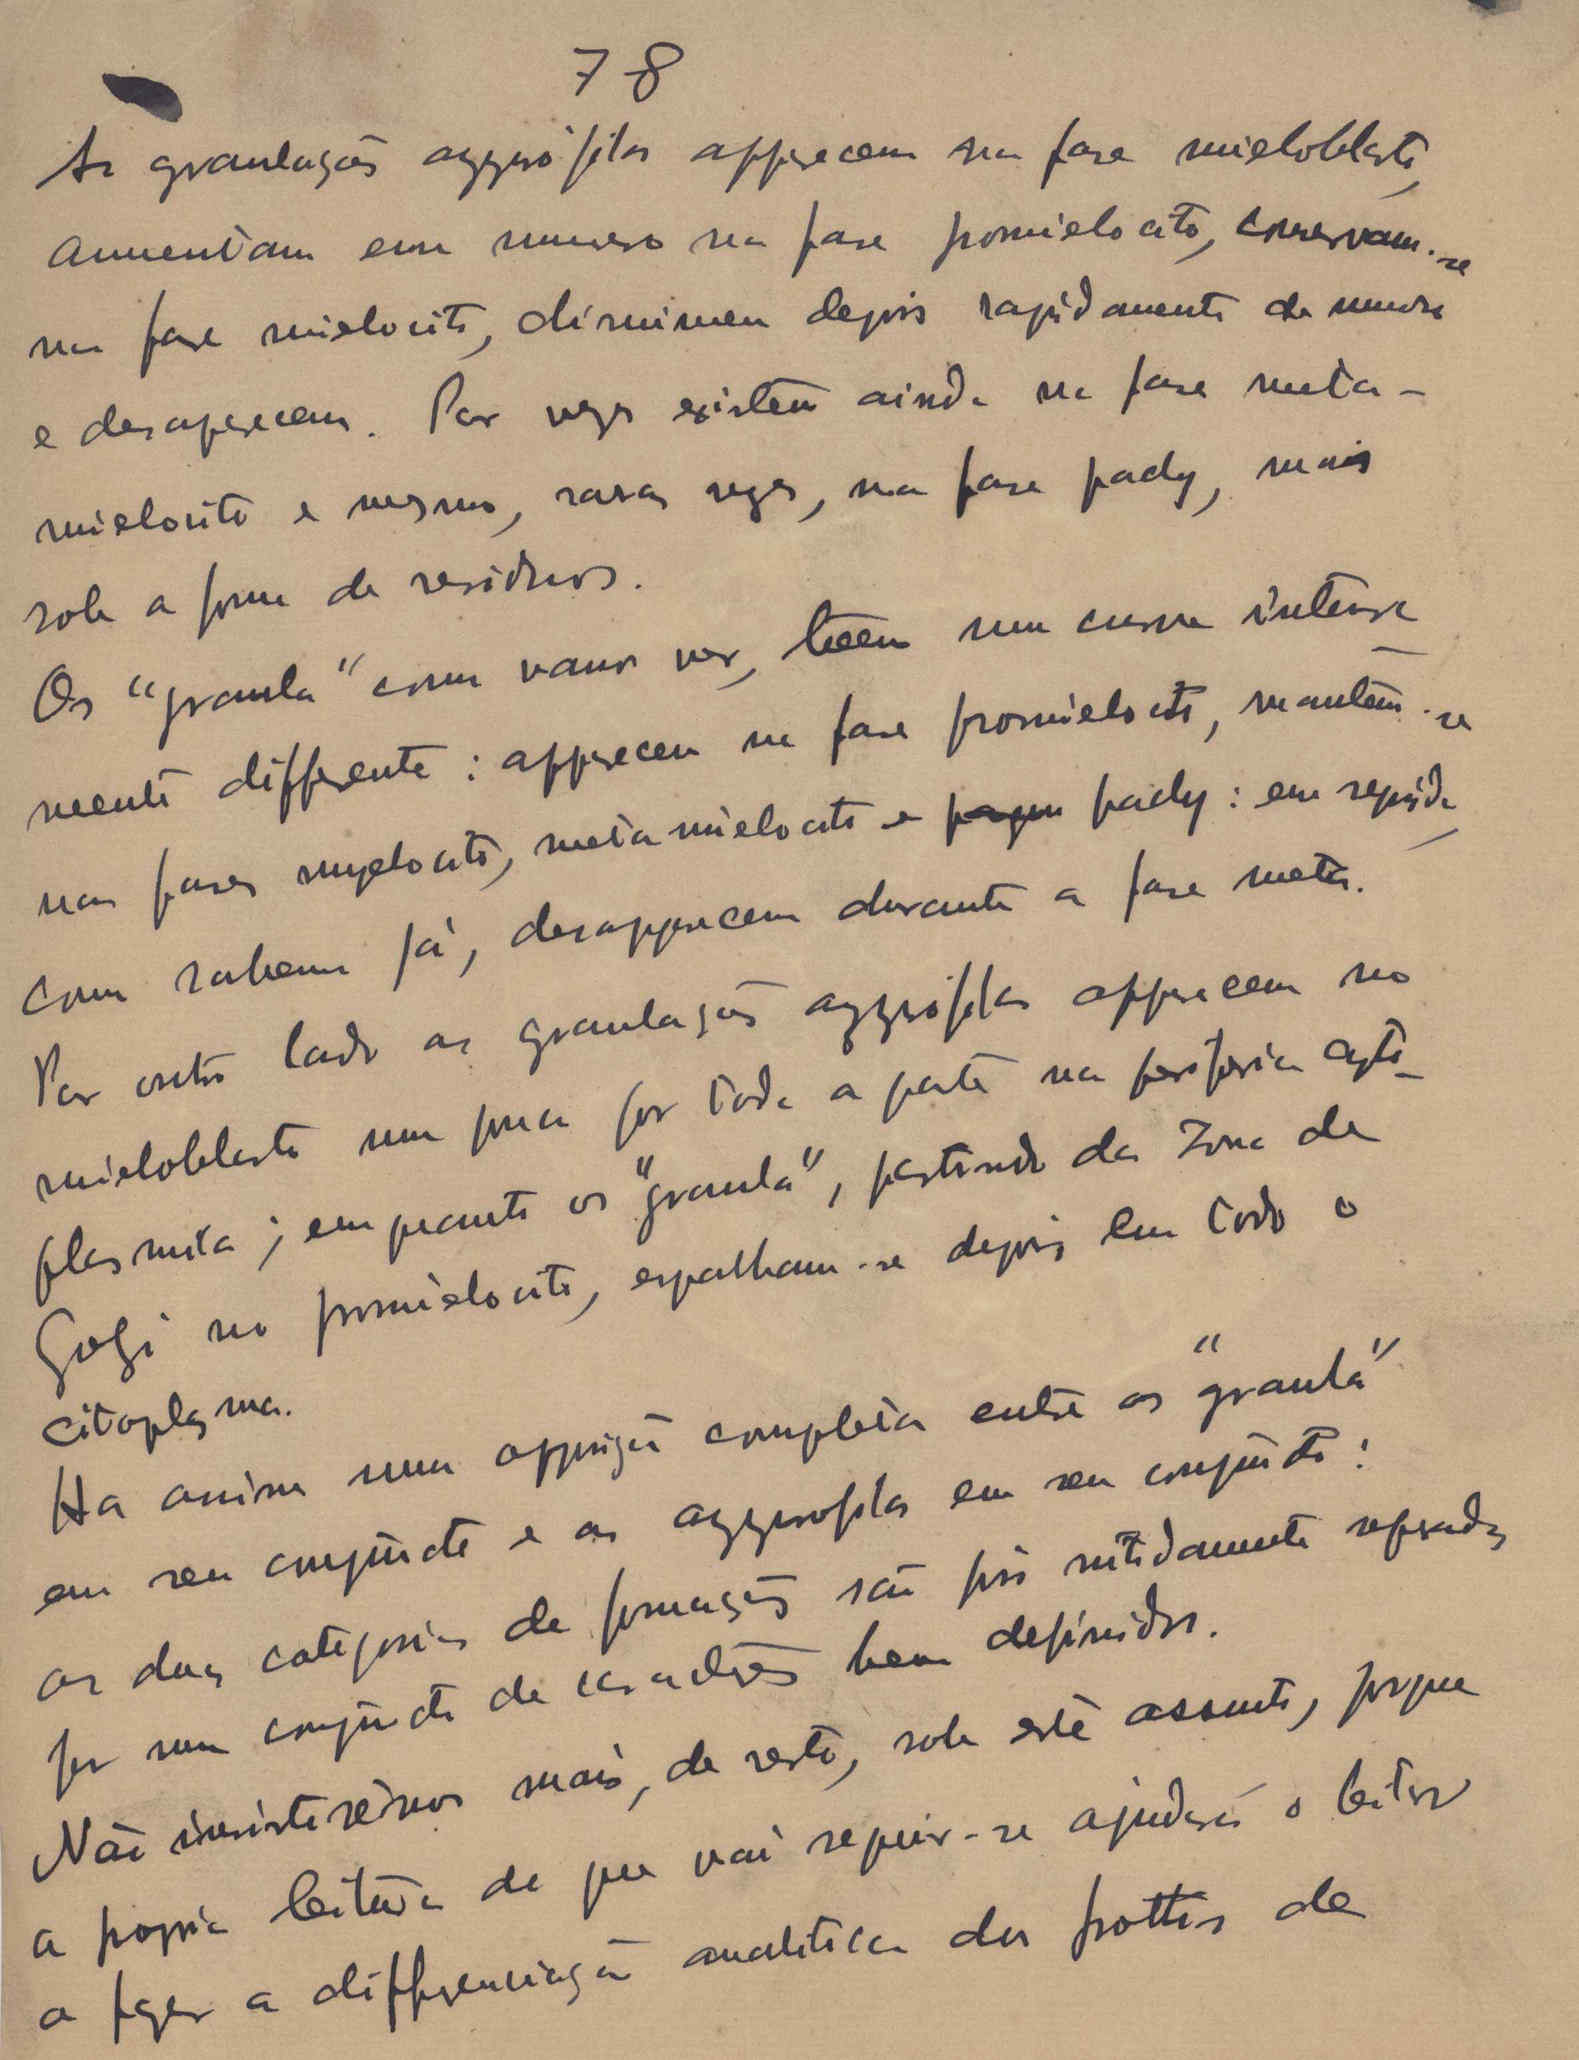 78
As granulações azzurófilas apparecem na fase mieloblasto,
aumentam em numero na fase promielocito, conservam-se
na fase mielocito, diminuem depois rapidamente de numero
e desaparecem. Por vezes existem ainda na fase meta-
mielocito e mesmo, raras vezes, na fase pachy, mais
sob a forma de residuos.
Os "granula" como vamos ver, teem um curso inteira
mente differente: apparecem na fase promielocito, mantêm-se
nas fases myelocito, metamielocito e pachy: em seguida,
como sabem já, desapparecem durante a fase meta.
Por outro lado as granulações azzurófilas apparecem no
mieloblasto um pouco por toda a parte na periferia cyto-
plasmica; emquanto os "granula", partindo da zona de
Golgi no promielocito, espalham-se depois em todo o
citoplasma.
Ha assim uma opposição completa entre os "granula"
em seu conjuncto e as azzurofilas em seu conjuncto:
as duas categorias de formações são pois nitidamente separadas
por um conjuncto de caracteres bem definidos.
Não insistiremos mais, de resto, sob este assunto, porque
a propria leitura do que vai seguir-se ajudará o leitor
a fazer a differenciação analitica dos frottis de